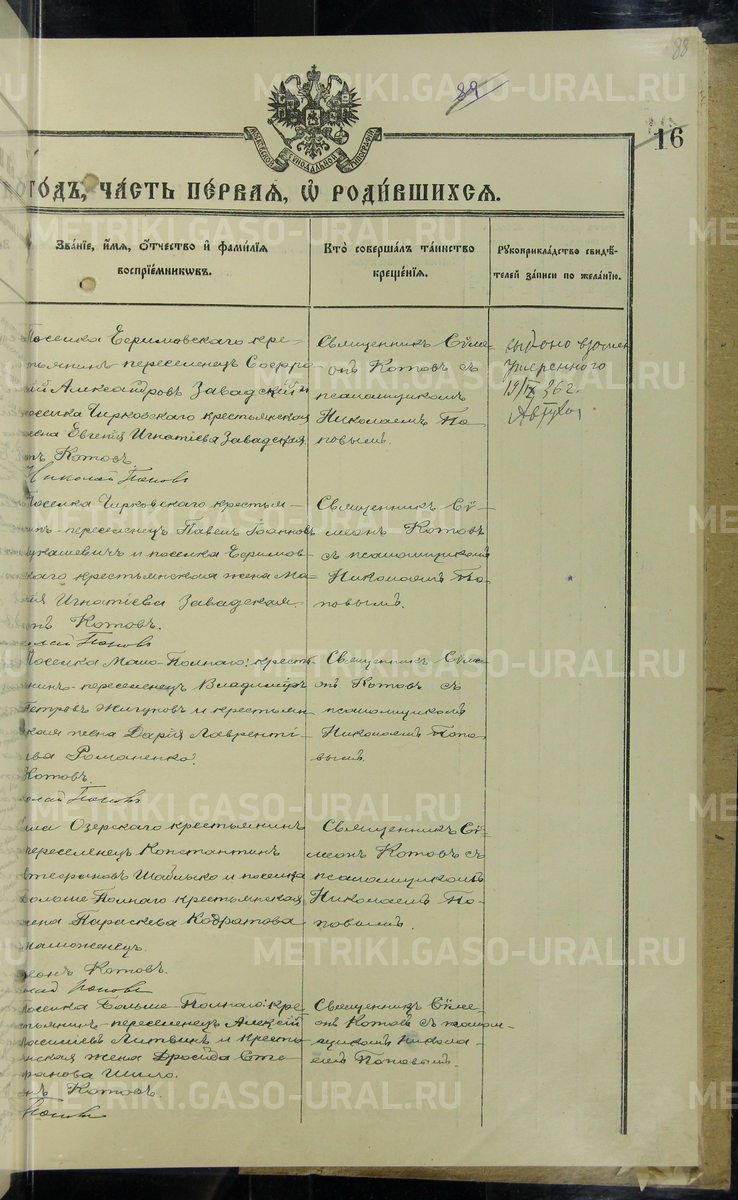 88
89
16
МОСКОВСКОЙ СѴНОДАЛЬНОЙ ТИПОГРАФІИ
го́дъ, ча́сть пе́рваѧ, ѡ҆ роди́вшихсѧ.
Зва́нїе, и҆́мѧ, ѻ҆́тчество и҆ фами́лїѧ
воспрїе́мникѡвъ.
Кто̀ соверша́лъ та́инство
креще́нїѧ.
Рꙋкоприкла́дство свидѣ́-
телей за́писи по жела́нїю.
Поселка Ефимовскаго кре-
тьянинъ-переселенецъ Софро-
ій Александровъ Завадскій и
поселка Чирковскаго крестьянская
жена Евгенія Игнатіева Завадская.
нъ Котовъ.
Николай Поповъ
Священникъ Сѵме-
онъ Котовъ съ
псаломщикомъ
Николаемъ По-
повымъ.
выдано взамен
утерянного
19/IX 36 г.
Поселка Чирковскаго крестья-
нинъ-переселенецъ Павелъ Іоанновъ
Лукашевичъ и поселка Ефимов-
скаго крестьянская жена Ма-
рія Игнатіева Завадская.
онъ Котовъ.
олай Поповъ
Священникъ Сѵ-
меонъ Котовъ
съ псаломщикомъ
Николаемъ По-
повымъ.
Поселка Мало-Полнаго: кресть-
янинъ-переселенецъ Владиміръ
Петровъ Жигуновъ и крестьян-
ская жена Дарія Лавренті-
ева Романенко.
Котовъ.
олай Поповъ
Священникъ Сѵме-
онъ Котовъ съ
псаломщикомъ
Николаемъ Попо-
вымъ.
Озерскаго крестьянинъ
переселенецъ Константинъ
Стефановъ и поселка
Больше-Полнаго крестьянская
жена Параскева Кодратова
Маможенецъ.
еонъ Котовъ.
олай Поповъ
Священникъ Сѵ-
меонъ Котовъ съ
псаломщикомъ
Николаемъ По-
повымъ.
поселка Больше-Полнаго: кре-
стьянинъ-переселенецъ Алексій
Литвинъ и кресть-
янская жена Дросида Сте-
фанова Шило.
нъ Котовъ.
Поповъ
Священникъ Сѵме-
онъ Котовъ съ псалом-
щикомъ Никола-
емъ Поповымъ.
METRIKI.GASO-URAL.RU